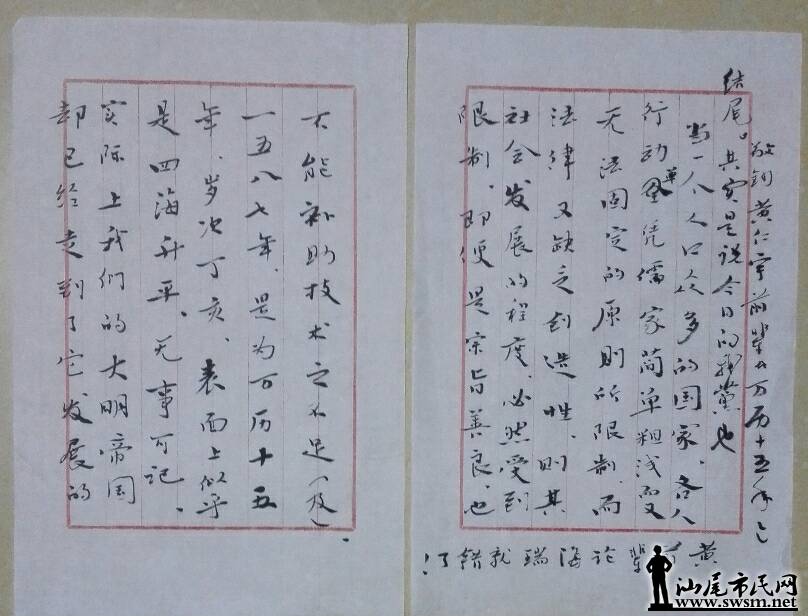 敬录黄仁宇前辈《万历十五年》之
结尾。其实是说今日的我党也
当一个人口众多的国家,各人
行动全凭儒家简单粗浅而又
无法固定的原则所限制,而
法律又缺乏创造性,则其
社会发展的程度,必然受到
限制。即便是宗旨善良,也
黄前辈论海瑞就错了!
不能补助技术之不足(及)。
一五八七年,是为万历十五
年,岁次丁亥,表面上似乎
是四海升平,无事可记,
实际上我们的大明帝国
却已经走到了它发展的
汕尾市民网
www.swsm.net